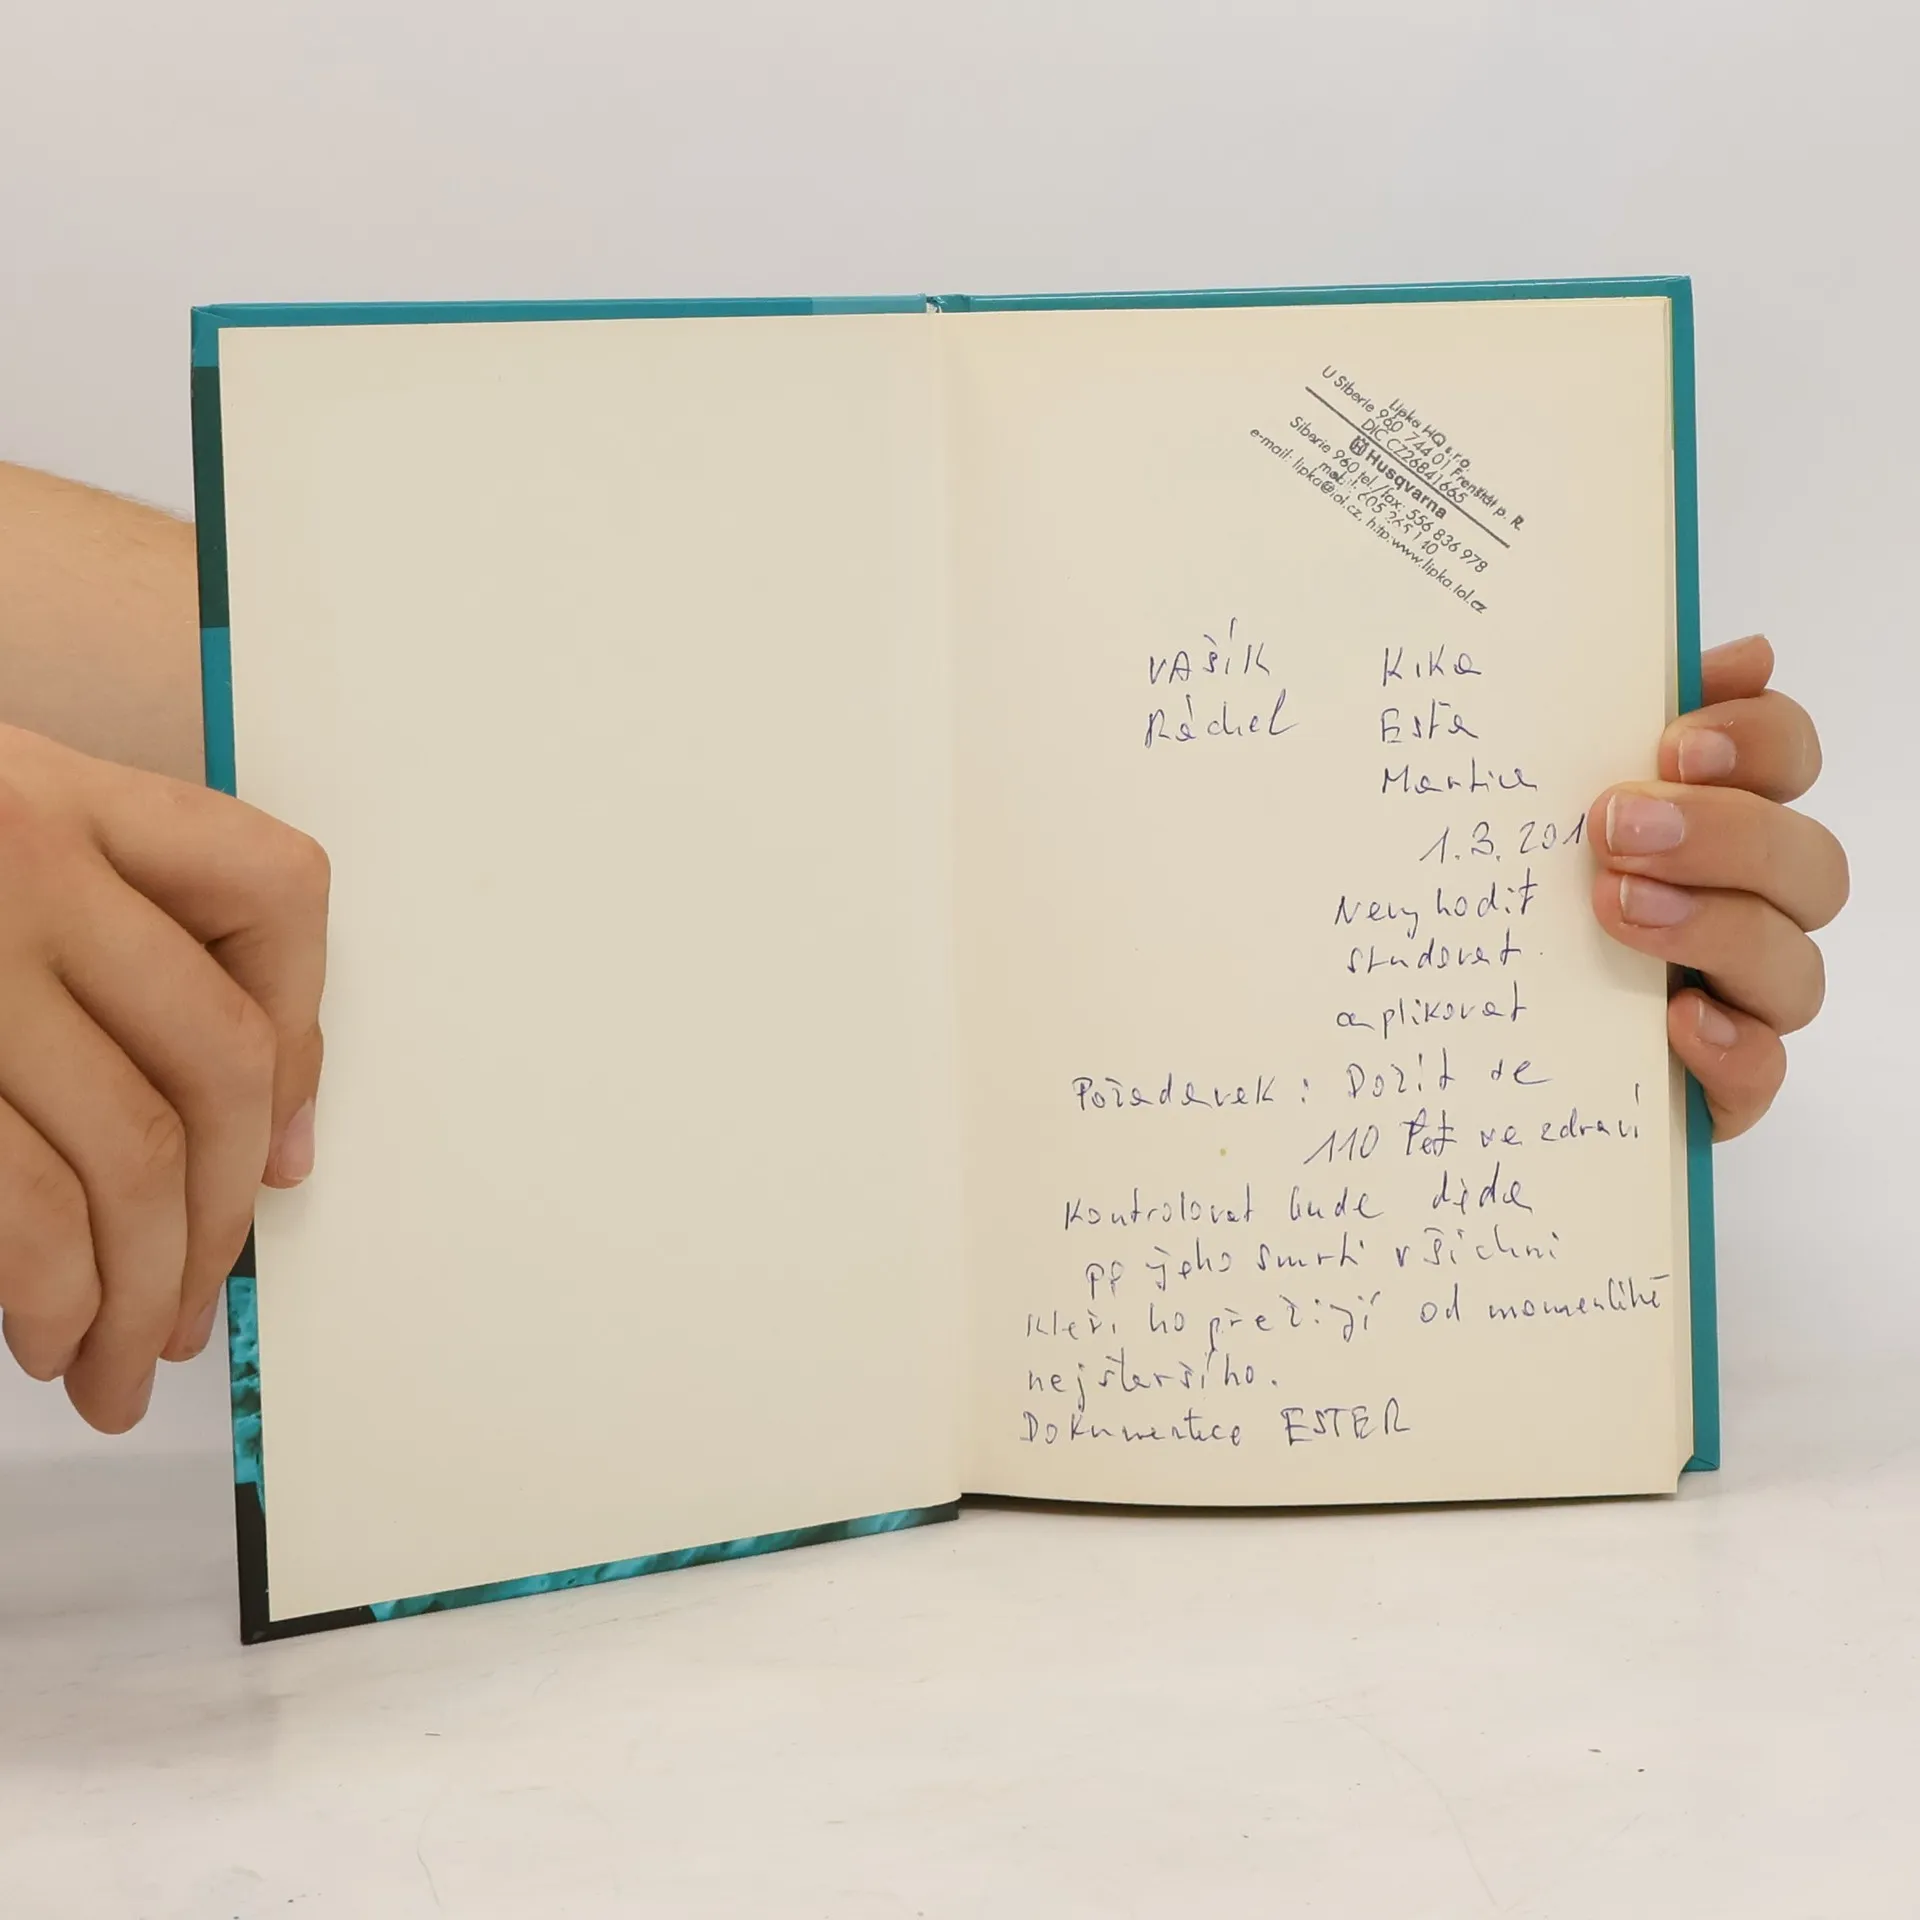 Lipka HQ s.r.o.
U Siberie 960 744 01 Frenštát p. R.
DIČ CZ26841665
Husqvarna
Siberie 960 tel./fax: 556 836 978
mobil: 605 265 110
e-mail: lipka@iol.cz, http:www.lipka.iol.cz
VAŠÍK Kika
Ráchel Esťa
Martin
1.3.201
Nevyhodit
studovat.
aplikovat
Požadavek: Dožít se
110 let ve zdraví
Kontrolovat bude děda
po jeho smrti všichni
kteří ho přežijí od momentálně
nejstaršího.
Dokumentace ESTER